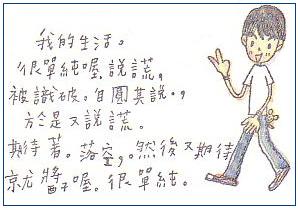 我的生活。
很單純喔,說謊,
被識破。自圓其說。,
於是又說謊。
期待著。落空,。然後又期待
就尤醬子喔。很單純。